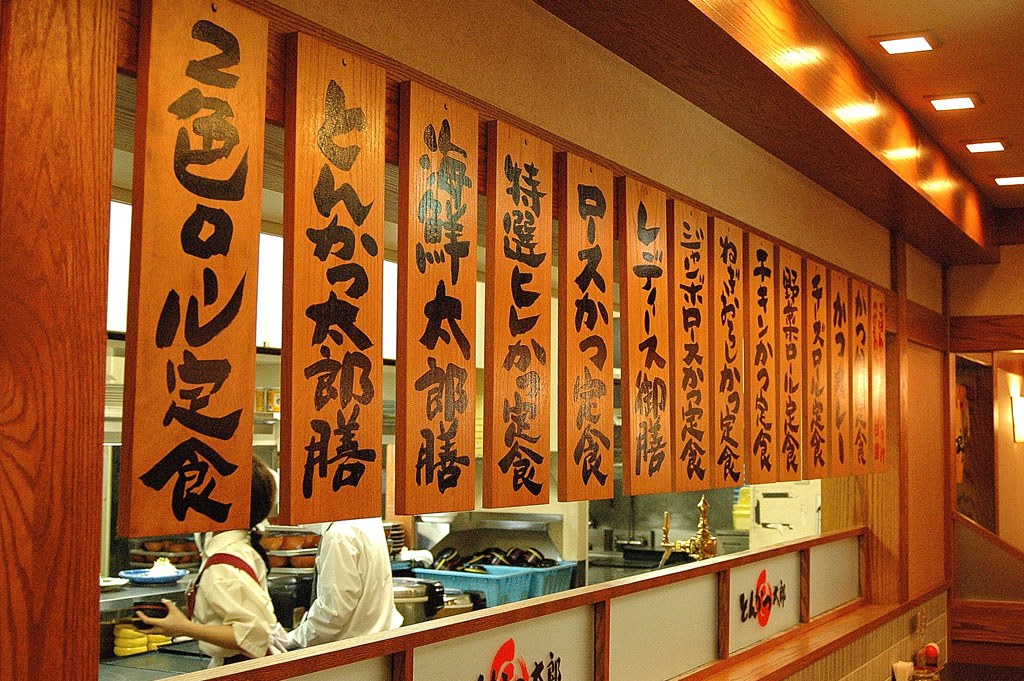 二色ロール定食
とんかつ太郎膳
海鮮太郎膳
特選ヒレかつ定食
ロースかつ定食
レディース御膳
ジャンボロースかつ定食
ねぎおろしかつ定食
チキンかつ定食
野菜ロール定食
チーズロール定食
かつカレー
かつ丼定食
とんかつ太郎
とんかつ太郎